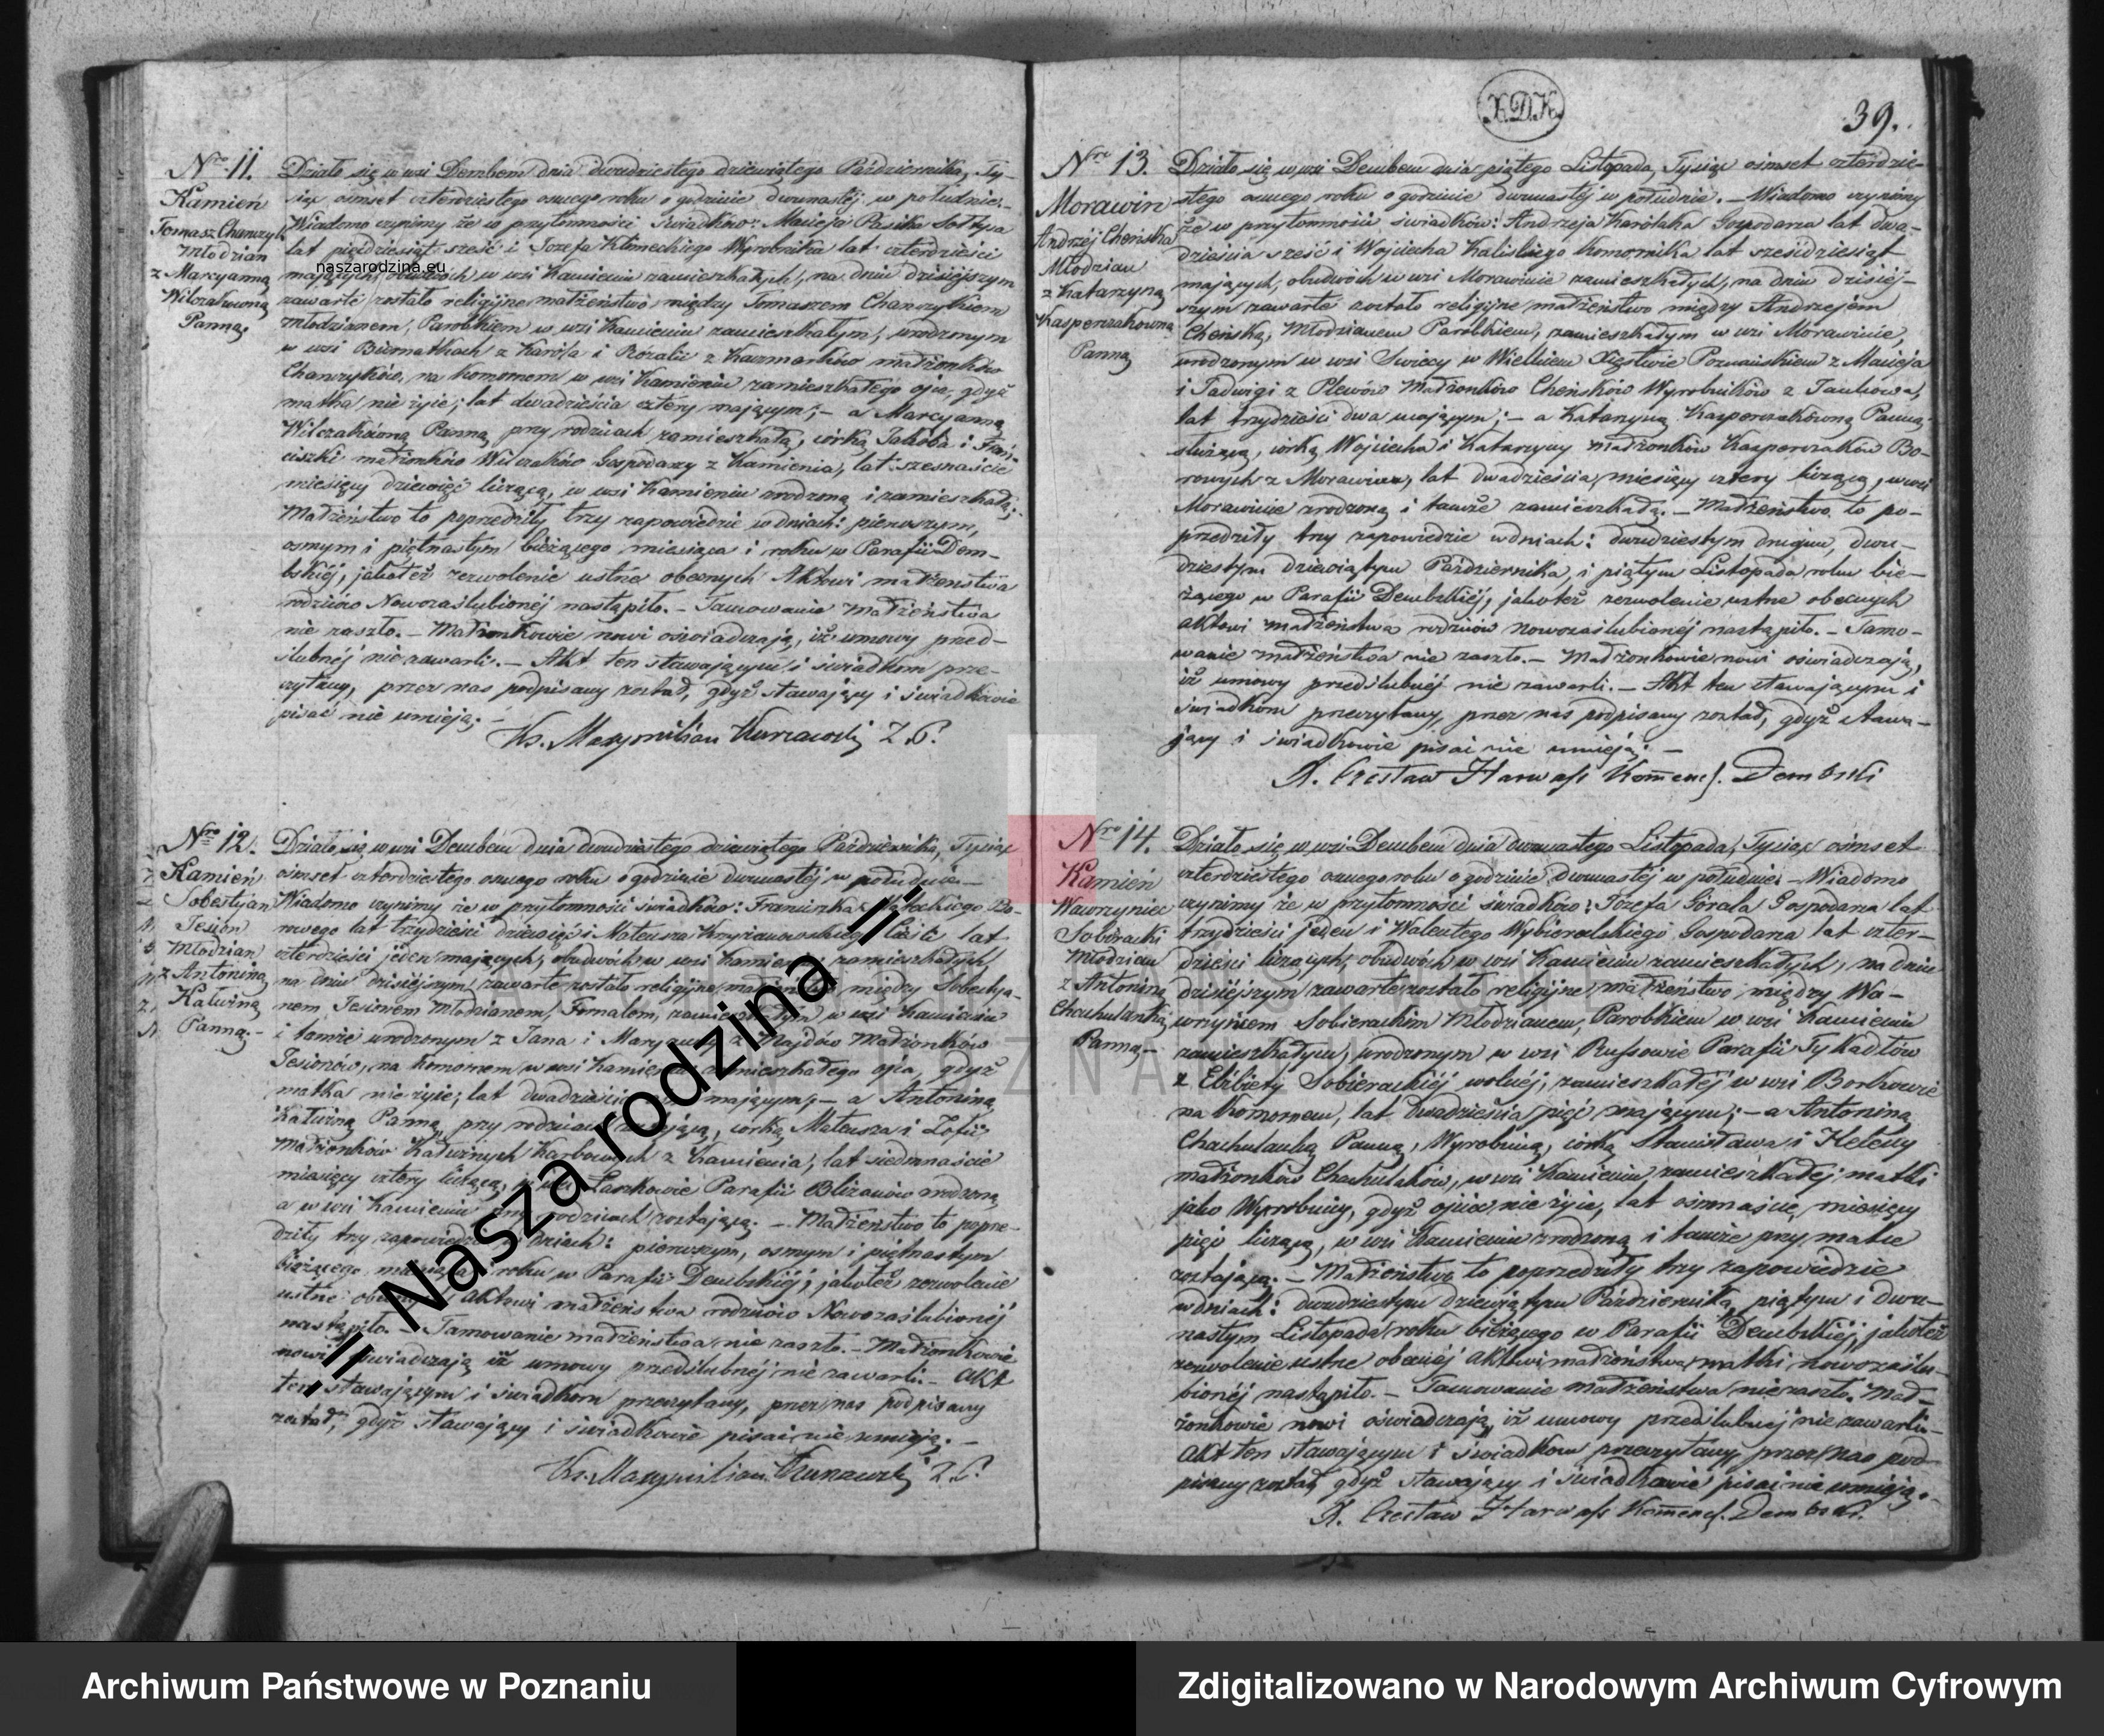 Nro 11.
Kamień
Tomasz Chanczyk
Młodzian
z Marcyanną
Wilczakówną
Panną.
Działo się w wsi Dembem dnia dwudziestego dziewiątego Października, Ty-
siąc ośmset czterdziestego osmego roku o godzinie dwunastéj w południe.-
Wiadomo czynimy że w przytomności Świadków: Macieja Pasika Sołtysa
lat pięćdziesiąt sześć i Józefa Kłomeckiego Wyrobnika lat czterdzieści
naszarodzina.eu
mających, obudwóch w wsi Kamieniu zamieszkałych, na dniu dzisiéjszym
zawarte zostało religijne małżeństwo między Tomaszem Chanczykiem
młodzianem, Parobkiem w wsi Kamieniu zamieszkałym, urodzonym
w wsi Biernatkach z Karóla i Rózalii z Kaczmarków małżonków
Chanczyków, na komornem w wsi Kamieniu zamieszkałego ojca, gdyż
matka nie żyie; lat dwadzieścia cztery mającym; - a Marcyanną
Wilczakówną Panną, przy rodzicach zamieszkałą, córką Jakóba i Fran-
ciszki małżonków Wilczaków Gospodarzy z Kamienia, lat szesnaście
miesięcy dziewięć liczącą, w wsi Kamieniu zrodzoną i zamieszkałą;-
Małżeństwo to poprzedziły trzy zapowiedzie w dniach: pierwszym,
osmym i piętnastym bieżącego miesiąca i roku w Parafii Dem-
bskiéj, jakoteż zezwolenie ustne obecnych Aktowi małżeństwa
rodziców Nowozaślubionéj nastąpiło. - Tamowanie Małżeństwa
nie zaszło. - Małżonkowie nowi oświadczają, iż umowy przed-
ślubnéj nie zawarli. - Akt ten stawającym i świadkom prze-
czytany, przez nas podpisany został, gdyż stawający i świadkowie
pisać nie umieją. -
Ks. Maxymilian Kurzawski Z.P.
Nro 12.
Kamień
Sobestyan
Jesion
Młodzian
z Antoniną
Katuzną
Panną. -
Działo się w wsi Dembem dnia dwudziestego dziewiątego Października, Tysiąc
ośmset czterdziestego osmego roku o godzinie dwunastéj w południe. -
Wiadomo czynimy że w przytomności świadków: Franciszka Bo-
rowego lat trzydzieści dziewięć i Mateusza Krzyżanowskiego Cieśli lat
czterdzieści jeden mających, obudwóch w wsi Kamieniu zamieszkałych,
na dniu dzisiéjszym zawarte zostało religijne małżeństwo między Sobestya-
nem Jesionem Młodzianem, Fornalem, zamieszkałym w wsi Kamieniu
i tamże urodzonym z Jana i Maryanny z Majdów Małżonków
Jesionów, na komornem w wsi Kamieniu zamieszkałego ojca, gdyż
matka nie żyie; lat dwadzieścia mającym; - a Antoniną
Panną, przy rodzicach córką Mateusza i Zofii
Małżonków Karbowych z Kamienia, lat siedmnaście
miesięcy cztery liczącą, w wsi Laszkowie Parafii Blizanów zrodzoną
a w wsi Kamieniu przy rodzicach zostającą. - Małżeństwo to poprze-
dziły trzy zapowiedzie w dniach: pierwszym, osmym i piętnastym
bieżącego miesiąca i roku w Parafii Dembskiéj, jakoteż zezwolenie
ustne obecnych Aktowi małżeństwa rodziców Nowozaślubionéj
nastąpiło. - Tamowanie małżeństwa nie zaszło. - Małżonkowie
nowi oświadczają iż umowy przedślubnéj nie zawarli. - Akt
ten stawającym i świadkom przeczytany, przez nas podpisany
został, gdyż stawający i świadkowie pisać nie umieją. -
Ks. Maxymilian Kurzawski Z.P.
-=Nasza rodzina =-
X.D.K.
39.
Nro 13.
Morawin
Andrzéj Cheńska
Młodzian
z Katarzyną
Kasperczakówną
Panną
Działo się w wsi Dembem dnia piątego Listopada, Tysiąc ośmset czterdzie-
stego osmego roku o godzinie dwunastéj w południe. - Wiadomo czynimy
że w przytomności świadków: Andrzeja Karólaka Gospodarza lat dwa-
dzieścia sześć i Wojciecha Kaliskiego Komornika lat sześćdziesiąt
mających, obudwóch w wsi Morawinie zamieszkałych, na dniu dzisiéj-
szym zawarte zostało religijne małżeństwo między Andrzejem
Cheńską, Młodzianem Parobkiem, zamieszkałym w wsi Morawinie,
urodzonym w wsi Swiecy w Wielkiem Xięstwie Poznańskiem z Macieja
i Jadwigi z Plewów Małżonków Cheńsków Wyrobników z Jankowa,
lat trzydzieści dwa mającym; - a Katarzyną Kasperczakówną Panną
służącą, córką Wojciecha i Katarzyny małżonków Kasperczaków Bo-
rowych z Morawina, lat dwadzieścia, miesięcy cztery liczącą, w wsi
Morawinie zrodzoną i tamże zamieszkałą. - Małżeństwo to po-
przedziły trzy zapowiedzie w dniach: dwudziestym drugim, dwu-
dziestym dziewiątym Października i piątym Listopada roku bie-
żącego w Parafii Dembskiéj, jakoteż zezwolenie ustne obecnych
aktowi małżeństwa rodziców nowozaślubionéj nastąpiło. - Tamo-
wanie małżeństwa nie zaszło. - Małżonkowie nowi oświadczają,
iż umowy przedślubnéj nie zawarli. - Akt ten stawającym i
świadkom przeczytany, przez nas podpisany został, gdyż stawa-
jący i świadkowie pisać nie umieją. -
X. Czesław Harwass Komend. Dembski
Nro 14.
Kamień
Wawrzyniec
Sobieracki
Młodzian
z Antoniną
Chachulanką
Panną. -
Działo się w wsi Dembem dnia dwunastego Listopada, Tysiąc ośmset
czterdziestego osmego roku o godzinie dwunastéj w południe. - Wiadomo
czynimy że w przytomności świadków: Józefa Górala Gospodarza lat
trzydzieści jeden i Walentego Wybieralskiego Gospodarza lat czter-
dzieści liczących, obudwóch w wsi Kamieniu zamieszkałych, na dniu
dzisiéjszym zawarte zostało religijne małżeństwo między Wa-
wrzyńcem Sobierackim Młodzianem, Parobkiem w wsi Kamieniu
zamieszkałym, urodzonym w wsi Russowie Parafii Tykadłów
z Elżbiety Sobierackiéj wolnéj, zamieszkałéj w wsi Borkowie
na komornem, lat dwadzieścia pięć mającym; - a Antoniną
Chachulanką Panną, Wyrobnicą, córką Stanisława i Heleny
małżonków Chachulaków, w wsi Kamieniu zamieszkałéj matki
jako Wyrobnicy, gdyż ojciec nie żyie, lat ośmnaście, miesięcy
pięć liczącą, w wsi Kamieniu zrodzoną i tamże przy matce
zostającą. - Małżeństwo to poprzedziły trzy zapowiedzie
w dniach: dwudziestym dziewiątym Października, piątym i dwu-
nastym Listopada roku bieżącego w Parafii Dembskiéj, jakoteż
zezwolenie ustne obecnéj aktowi małżeństwa matki nowozaślu-
bionéj nastąpiło. - Tamowanie małżeństwa nie zaszło. Mał-
żonkowie nowi oświadczają, iż umowy przedślubnéj nie zawarli. -
Akt ten stawającym i świadkom przeczytany, przez nas pod-
pisany został, gdyż stawający i świadkowie pisać nie umieją. -
X. Czesław Harwass Komend. Dembski.
Archiwum Państwowe w Poznaniu
Zdigitalizowano w Narodowym Archiwum Cyfrowym